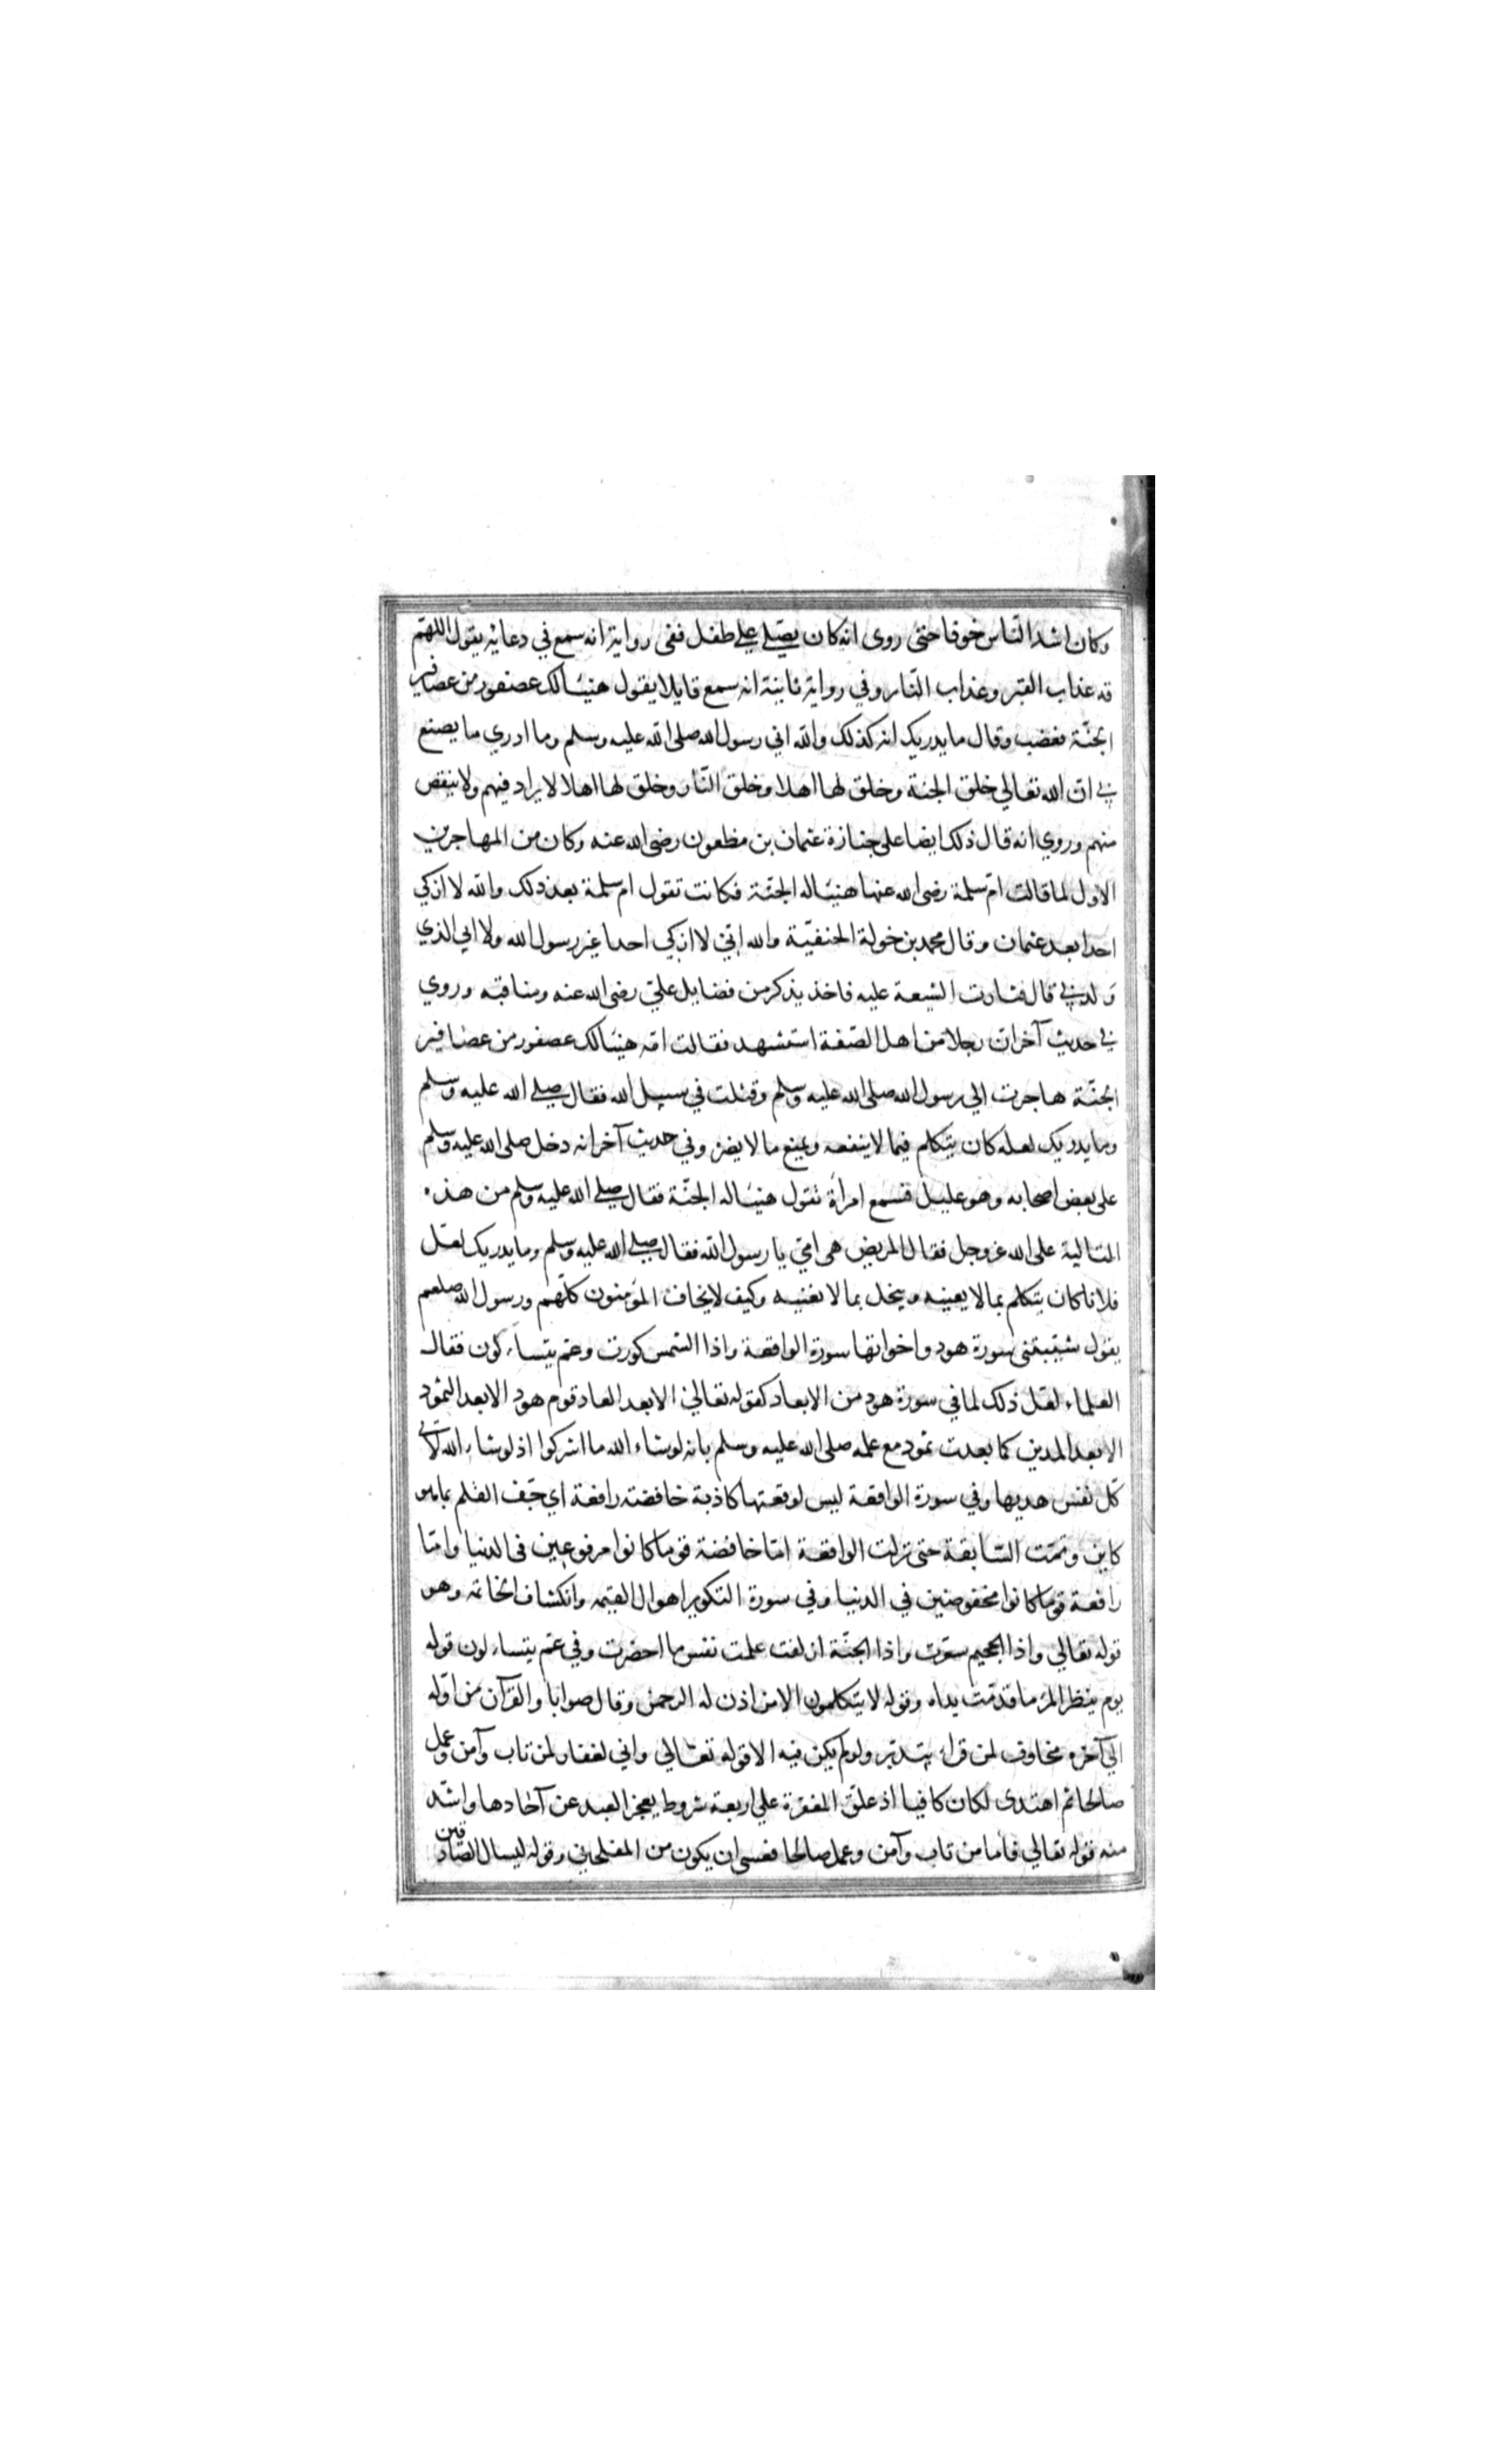 وكان اشد الناس خوفا حتى روى انه كان يصلي علي طفل ففى رواية انه سمع في دعائه يقول اللهم
قه عذاب القبر وعذاب النار وفي رواية ثانية انه سمع قايلا يقول هنيئا لك عصفور من عصافير
الجنة فغضب وقال ما يدريك انه كذلك والله اني رسول الله صلى الله عليه وسلم وما ادري ما يصنع
بي ان الله تعالي خلق الجنة وخلق لها اهلا وخلق النار وخلق لها اهلا لا يزاد فيهم ولا ينقص
منهم وروي انه قال ذلك ايضا على جنازة عثمان بن مظعون رضى الله عنه وكان من المهاجرين
الاول لما قالت ام سلمة رضى الله عنها هنيئا له الجنة فكانت تقول ام سلمة بعد ذلك والله لا ازكي
احدا بعد عثمان وقال محمد بن خولة الحنفية والله اني لا ازكي احدا غير رسول الله ولا ابي الذي
ولدني قال فثارت الشيعة عليه فاخذ يذكر من فضايل علي رضى الله عنه ومناقبه وروي
في حديث آخر ان رجلا من اهل الصفة استشهد فقالت امه هنيئا لك عصفور من عصافير
الجنة هاجرت الي رسول الله صلى الله عليه وسلم وقتلت في سبيل الله فقال صلى الله عليه وسلم
وما يدريك لعله كان يتكلم فيما لا ينفعه ويمنع ما لا يضره وفي حديث آخر انه دخل صلى الله عليه وسلم
على بعض اصحابه وهو عليل فسمع امرأة تقول هنيئا له الجنة فقال صلى الله عليه وسلم من هذه
المتالية على الله عز وجل فقال المريض هى امي يا رسول الله فقال صلى الله عليه وسلم وما يدريك لعل
فلانا كان يتكلم بما لا يعنيه ويبخل بما لا يغنيه وكيف لا يخاف المؤمنون كلهم ورسول الله صلعم
يقول شيبتنى سورة هود واخواتها سورة الواقعة واذا الشمس كورت وعم يتساءلون فقال
العلماء لعل ذلك لما في سورة هود من الابعاد كقوله تعالي الا بعدا لعاد قوم هود الا بعدا لثمود
الا بعدا لمدين كما بعدت ثمود مع علمه صلى الله عليه وسلم بانه لو شاء الله ما اشركوا اذ لو شاء الله لآتي
كل نفس هديها وفي سورة الواقعة ليس لوقعتها كاذبة خافضة رافعة اي جف القلم بما هو
كاين وتمت السابقة حتى نزلت الواقعة اما خافضة قوما كانوا مرفوعين فى الدنيا واما
رافعة قوما كانوا مخفوضين في الدنيا وفي سورة التكوير اهوال القيمه وانكشاف الخاتمه وهو
قوله تعالي واذا الجحيم سعرت واذا الجنة ازلفت علمت نفس ما احضرت وفي عم يتساءلون قوله
يوم ينظر المرء ما قدمت يداه وقوله لا يتكلمون الا من اذن له الرحمن وقال صوابا والقرآن من اوله
الي آخره مخاوف لمن قراه بتدبر ولو لم يكن فيه الا قوله تعالي واني لغفار لمن تاب وآمن وعمل
صالحا ثم اهتدى لكان كافيا اذ علق المغفرة علي اربعة شروط يعجز العبد عن آحادها واشد
منه قوله تعالي فاما من تاب وآمن وعمل صالحا فعسى ان يكون من المفلحين وقوله ليسال الصادقين